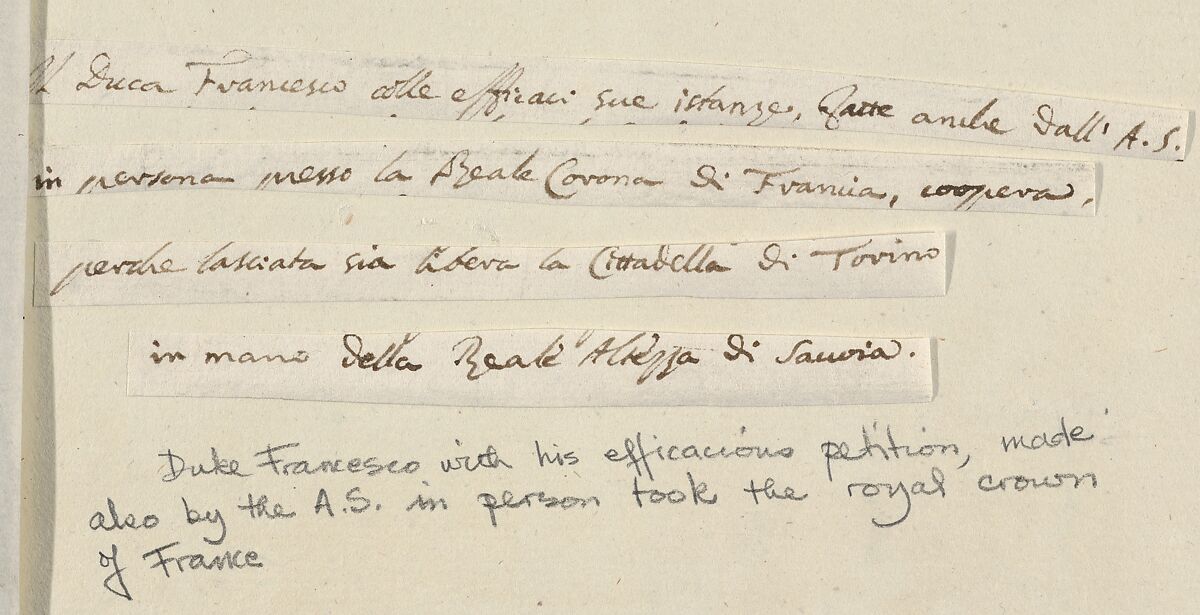 Il Duca Francesco colle efficaci sue istanze, Fatte anche dall' A.S.
in persona presso la Reale Corona di Francia, coopera,
perche lasciata sia libera la Cittadella di Torino
in mano della Reale Altezza di Savoia.
Duke Francesco with his efficacious petition, made
also by the A.S. in person took the royal crown
of France